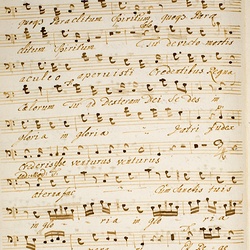 Paraclitum Spiritum
Spiritum Tu devicto mortis
aculeo aperuisti Credentibus Regna
Cœlorum Tu ad Dexteram Dei Sedes in
gloria in gloria Patris Judex
Crederis esse venturus venturus
Æterna fac Cum Sanctis tuis
in glo ria in glo ria